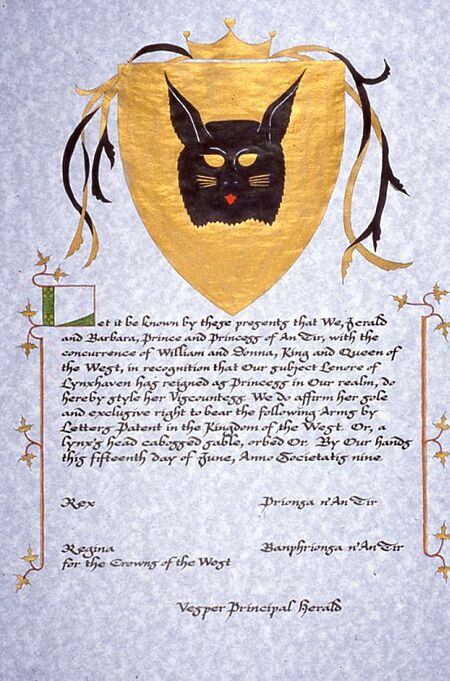 Let it be known by these presents that We, Gerald
and Barbara, Prince and Princess of An Tir, with the
concurrence of William and Donna, King and Queen of
the West, in recognition that Our subject Lenore of
Lynxhaven has reigned as Princess in Our realm, do
hereby style her Viscountess. We do affirm her sole
and exclusive right to bear the following Arms by
Letters Patent in the Kingdom of the West. Or, a
lynx's head cabossed sable, orbed Or. By Our hands
this fifteenth day of June, Anno Societatis nine
Rex Prionsa n'An Tir
Regina Banphrionsa n'An Tir
for the Crowns of the West
Vesper Principal Herald